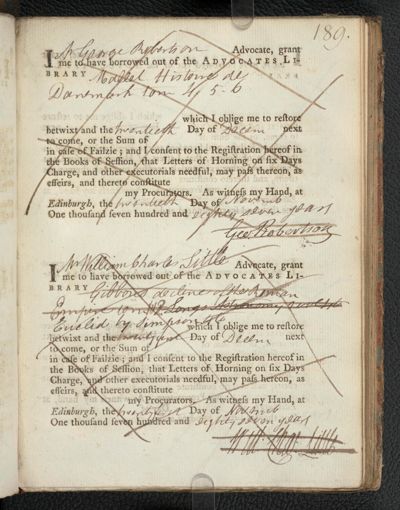 189.
I Mr George Robertson Advocate, grant
me to have borrowed out of the ADVOCATES LI-
BRARY Mallet Histoire de
Danemark tom 4 5. 6
which I oblige me to restore
betwixt and the twentieth Day of Decem next
to come, or the Sum of
in case of Failzie; and I consent to the Registration hereof in
the Books of Session, that Letters of Horning on six Days
Charge, and other executorials needful, may pass thereon, as
effeirs, and thereto constitute
my Procurators. As witness my Hand, at
Edinburgh, the twentieth Day of Novemb
One thousand seven hundred and eighty seven years
Geo Robertson
I Mr William Charles Little Advocate, grant
me to have borrowed out of the ADVOCATES LI-
BRARY Gibbons decline of the Roman
Empire
Euclid by Simpson which I oblige me to restore
betwixt and the twentyfirst Day of Decem next
to come, or the Sum of
in case of Failzie; and I consent to the Registration hereof in
the Books of Session, that Letters of Horning on six Days
Charge, and other executorials needful, may pass hereon, as
effeirs, and thereto constitute
my Procurators. As witness my Hand, at
Edinburgh, the twentyfirst Day of Novemb
One thousand seven hundred and eighty seven years
Will Char Little